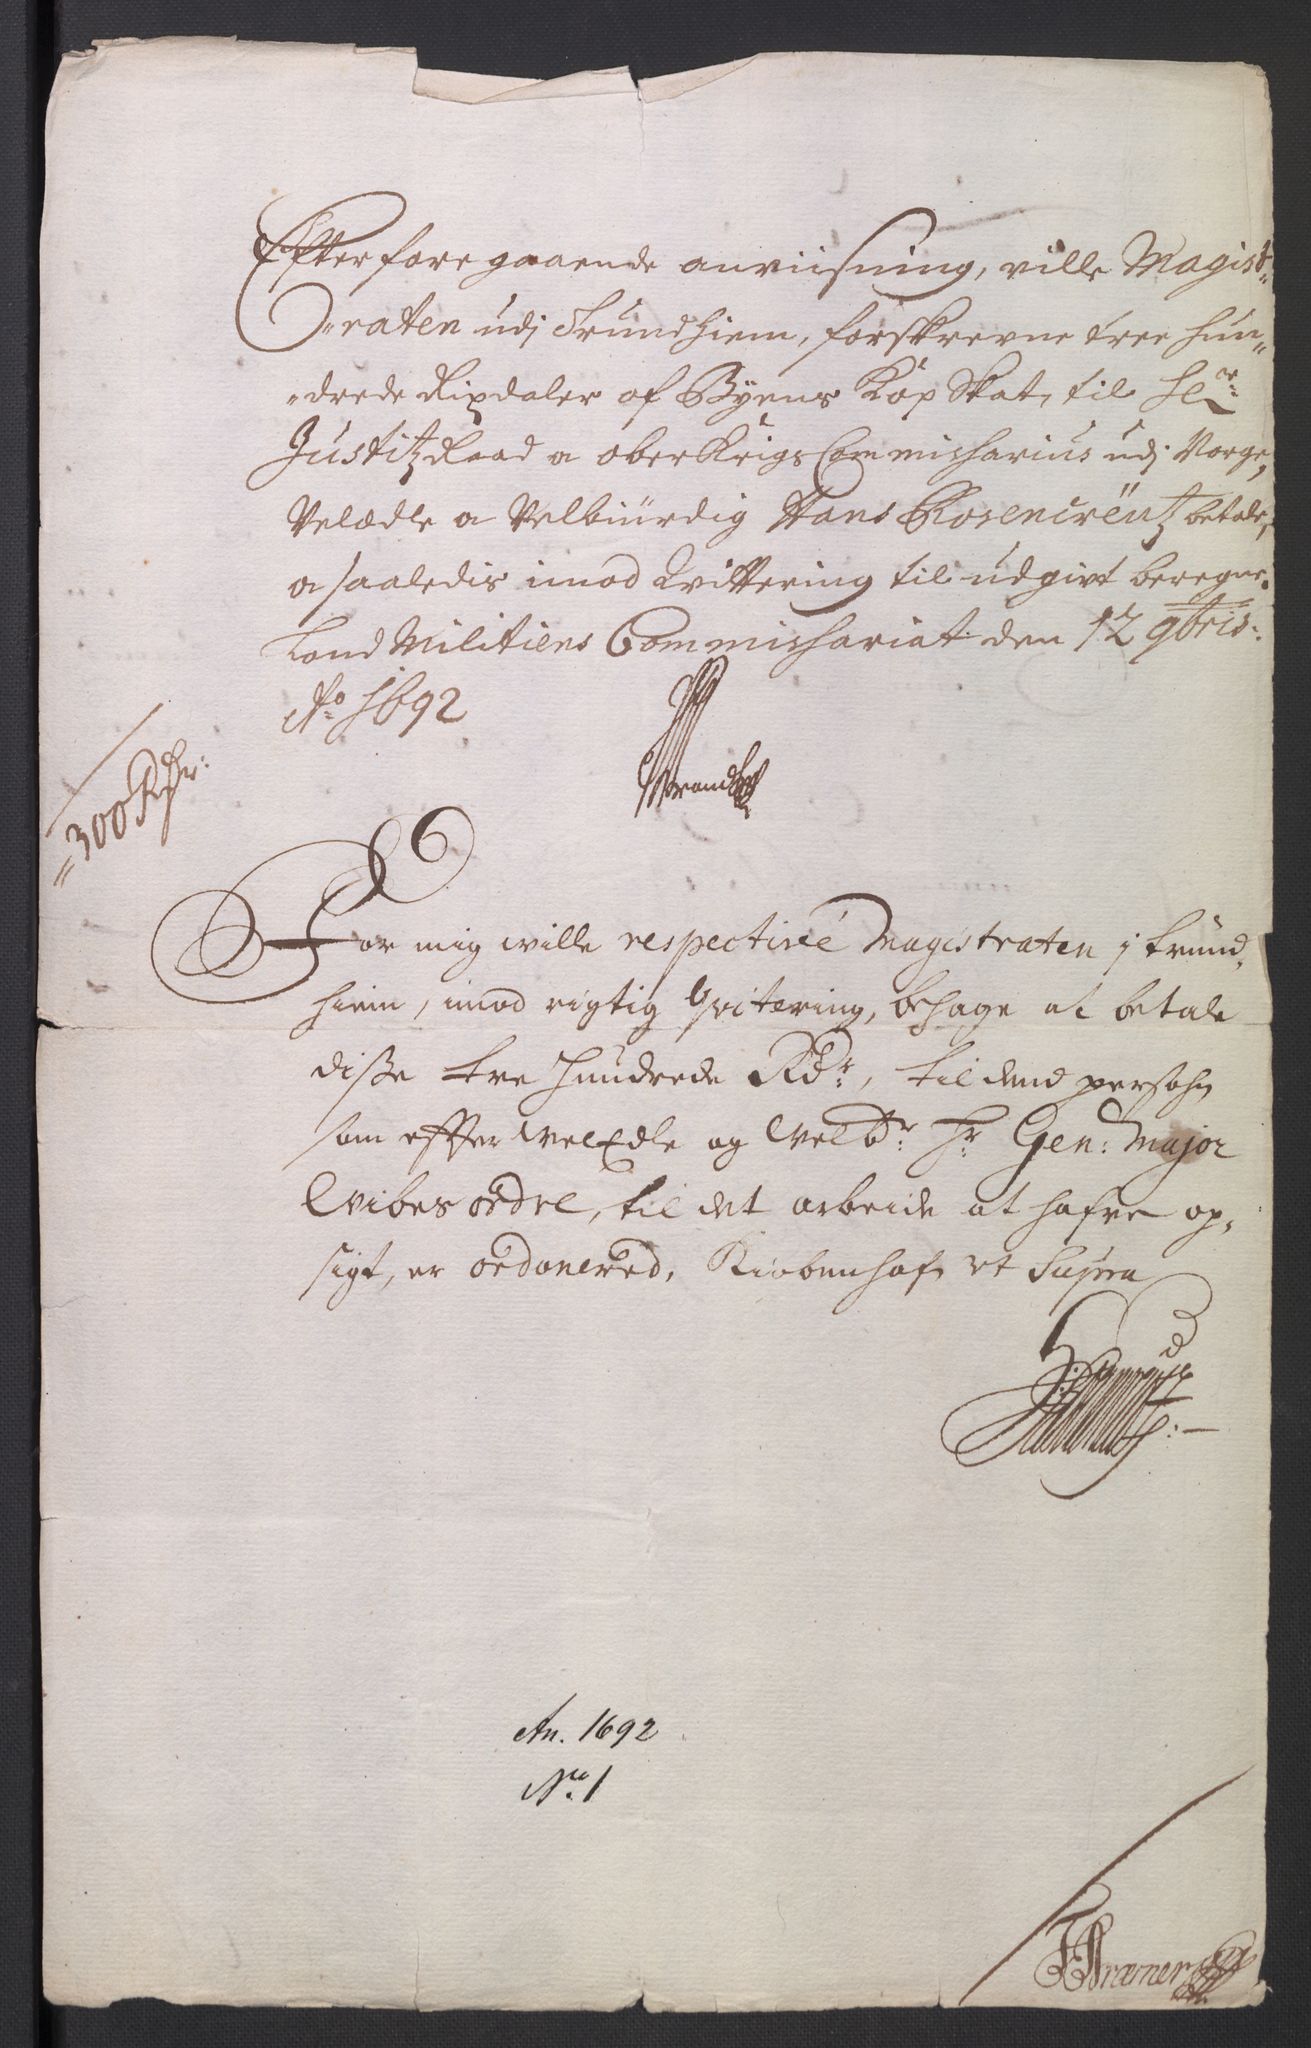 Efter foregaaende anviisning, ville Magist=
"raten udj Trundhiem, forskrevne tree Hun„
"drede Rixdaler af Byens Kop Skat, til Hr:
Justitz Raad a ober Krigs Commisharius udj Norge,
Velædle a Velbiurdig Hans Rosencreütz betale,
a saaledis imod Qvittering til udgivt beregne.
Land Militiens Commishariat den 12 9bris:
Ao 1692
"300 Rdr:
For mig wille respectivé Magistraten j trund,
hiem, imod rigtig Qvitering, behage at betale
disse tre hundrede Rdr:, til dend persohn
som effter WelEdle og Welbr: Hr: Gen: Major
Wibes ordre, til det arbeide at hafve op,
sigt, er ordonered, Kiøbenhafn ut Supra
An. 1692
No. 1